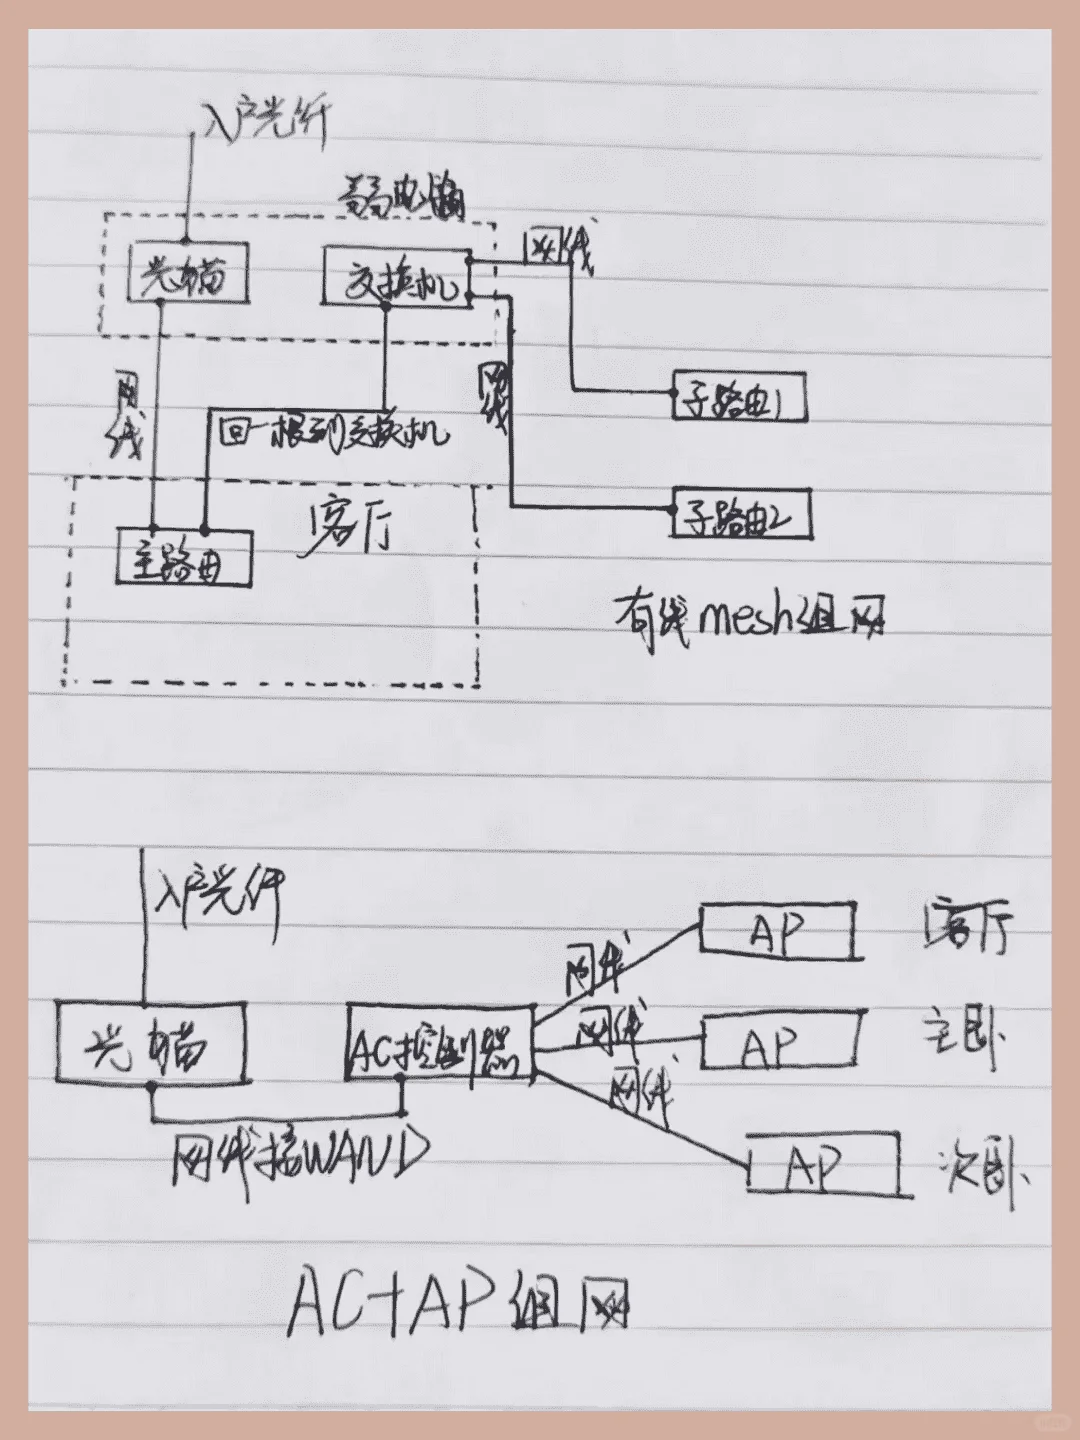 入户光纤
弱电箱
光猫
交换机
网线
网线
网线
回一根到交换机
子路由1
子路由2
客厅
主路由
有线mesh组网
入户光纤
光猫
AC控制器
网线
网线
网线
AP
客厅
AP
主卧
AP
次卧
网线接WAND
AC+AP组网